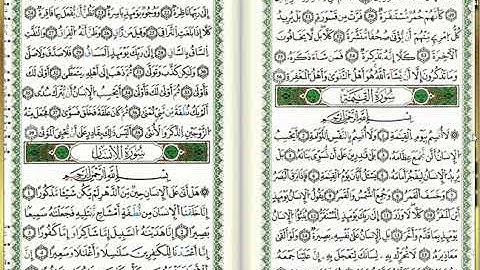 كَأَنَّهُمْ حُمُرٌ مُّسْتَنفِرَةٌ ۝٥٠ فَرَّتْ مِن قَسْوَرَةٍ ۝٥١ بَلْ يُرِيدُ
كُلُّ ٱمْرِئٍ مِّنْهُمْ أَن يُؤْتَىٰ صُحُفًا مُّنَشَّرَةً ۝٥٢ كَلَّا بَل لَّا يَخَافُونَ
ٱلْءَاخِرَةَ ۝٥٣ كَلَّا إِنَّهُۥ تَذْكِرَةٌ ۝٥٤ فَمَن شَاءَ ذَكَرَهُۥ ۝٥٥
وَمَا يَذْكُرُونَ إِلَّا أَن يَشَاءَ ٱللَّهُ هُوَ أَهْلُ ٱلتَّقْوَىٰ وَأَهْلُ ٱلْمَغْفِرَةِ ۝٥٦
سُورَةُ ٱلْقِيَامَةِ
بِسْمِ ٱللَّهِ ٱلرَّحْمَٰنِ ٱلرَّحِيمِ
لَا أُقْسِمُ بِيَوْمِ ٱلْقِيَٰمَةِ ۝١ وَلَا أُقْسِمُ بِٱلنَّفْسِ ٱللَّوَّامَةِ ۝٢ أَيَحْسَبُ
ٱلْإِنسَٰنُ أَلَّن نَّجْمَعَ عِظَامَهُۥ ۝٣ بَلَىٰ قَٰدِرِينَ عَلَىٰ أَن نُّسَوِّيَ بَنَانَهُۥ ۝٤ بَلْ
يُرِيدُ ٱلْإِنسَٰنُ لِيَفْجُرَ أَمَامَهُۥ ۝٥ يَسْـَٔلُ أَيَّانَ يَوْمُ ٱلْقِيَٰمَةِ ۝٦ فَإِذَا بَرِقَ ٱلْبَصَرُ
۝٧ وَخَسَفَ ٱلْقَمَرُ ۝٨ وَجُمِعَ ٱلشَّمْسُ وَٱلْقَمَرُ ۝٩ يَقُولُ ٱلْإِنسَٰنُ يَوْمَئِذٍ
أَيْنَ ٱلْمَفَرُّ ۝١٠ كَلَّا لَا وَزَرَ ۝١١ إِلَىٰ رَبِّكَ يَوْمَئِذٍ ٱلْمُسْتَقَرُّ ۝١٢ يُنَبَّؤُا ٱلْإِنسَٰنُ
يَوْمَئِذٍ بِمَا قَدَّمَ وَأَخَّرَ ۝١٣ بَلِ ٱلْإِنسَٰنُ عَلَىٰ نَفْسِهِۦ بَصِيرَةٌ ۝١٤ وَلَوْ أَلْقَىٰ
مَعَاذِيرَهُۥ ۝١٥ لَا تُحَرِّكْ بِهِۦ لِسَانَكَ لِتَعْجَلَ بِهِۦ ۝١٦ إِنَّ عَلَيْنَا جَمْعَهُۥ
إِلَىٰ رَبِّهَا نَاظِرَةٌ ۝٢٣ وَوُجُوهٌ يَوْمَئِذٍ بَاسِرَةٌ ۝٢٤ تَظُنُّ أَن يُفْعَلَ بِهَا فَاقِرَةٌ
۝٢٥ كَلَّا إِذَا بَلَغَتِ ٱلتَّرَاقِيَ ۝٢٦ وَقِيلَ مَنْ رَاقٍ ۝٢٧ وَظَنَّ أَنَّهُ ٱلْفِرَاقُ ۝٢٨ وَٱلْتَفَّتِ
ٱلسَّاقُ بِٱلسَّاقِ ۝٢٩ إِلَىٰ رَبِّكَ يَوْمَئِذٍ ٱلْمَسَاقُ ۝٣٠ فَلَا صَدَّقَ وَلَا صَلَّىٰ
۝٣١ وَلَٰكِن كَذَّبَ وَتَوَلَّىٰ ۝٣٢ ثُمَّ ذَهَبَ إِلَىٰ أَهْلِهِۦ يَتَمَطَّىٰ ۝٣٣ أَوْلَىٰ لَكَ
فَأَوْلَىٰ ۝٣٤ ثُمَّ أَوْلَىٰ لَكَ فَأَوْلَىٰ ۝٣٥ أَيَحْسَبُ ٱلْإِنسَٰنُ أَن يُتْرَكَ سُدًى ۝٣٦
أَلَمْ يَكُ نُطْفَةً مِّن مَّنِيٍّ يُمْنَىٰ ۝٣٧ ثُمَّ كَانَ عَلَقَةً فَخَلَقَ فَسَوَّىٰ ۝٣٨ فَجَعَلَ مِنْهُ
ٱلزَّوْجَيْنِ ٱلذَّكَرَ وَٱلْأُنثَىٰ ۝٣٩ أَلَيْسَ ذَٰلِكَ بِقَٰدِرٍ عَلَىٰ أَن يُحْـِۧيَ ٱلْمَوْتَىٰ ۝٤٠
سُورَةُ ٱلْإِنسَانِ
بِسْمِ ٱللَّهِ ٱلرَّحْمَٰنِ ٱلرَّحِيمِ
هَلْ أَتَىٰ عَلَى ٱلْإِنسَٰنِ حِينٌ مِّنَ ٱلدَّهْرِ لَمْ يَكُن شَيْـًٔا مَّذْكُورًا ۝١
إِنَّا خَلَقْنَا ٱلْإِنسَٰنَ مِن نُّطْفَةٍ أَمْشَاجٍ نَّبْتَلِيهِ فَجَعَلْنَٰهُ سَمِيعًا
بَصِيرًا ۝٢ إِنَّا هَدَيْنَٰهُ ٱلسَّبِيلَ إِمَّا شَاكِرًا وَإِمَّا كَفُورًا ۝٣
إِنَّا أَعْتَدْنَا لِلْكَٰفِرِينَ سَلَٰسِلَا۟ وَأَغْلَٰلًا وَسَعِيرًا ۝٤